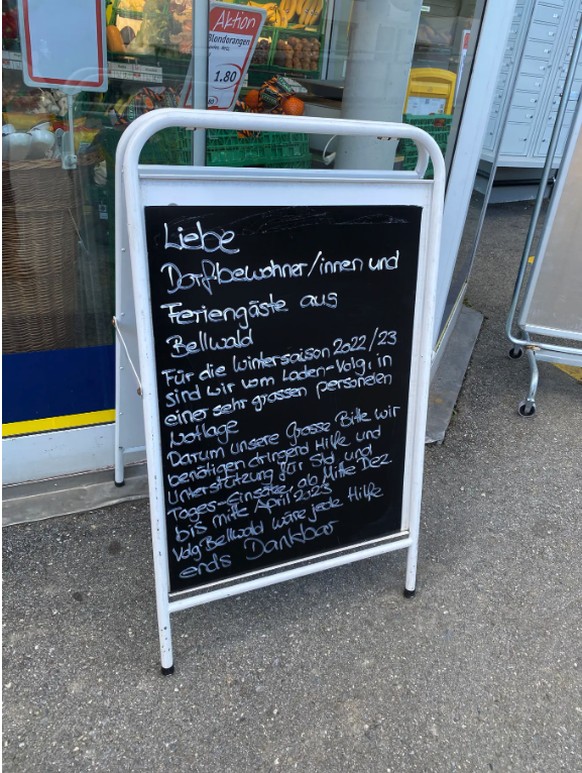 Aktion
Blondorangen
1.80
Liebe
Dorfbewohner/innen und
Feriengäste aus
Bellwald
Für die Wintersaison 2022/23
sind wir vom Laden-Volg, in
einer sehr grossen personellen
Notlage
Darum unsere Grosse Bitte wir
benötigen dringend Hilfe und
Unterstützung für Std. und
Tages-Einsätze, ab Mitte Dez.
bis mitte April 2023
Volg Bellwald wäre jede Hilfe
ends Dankbar